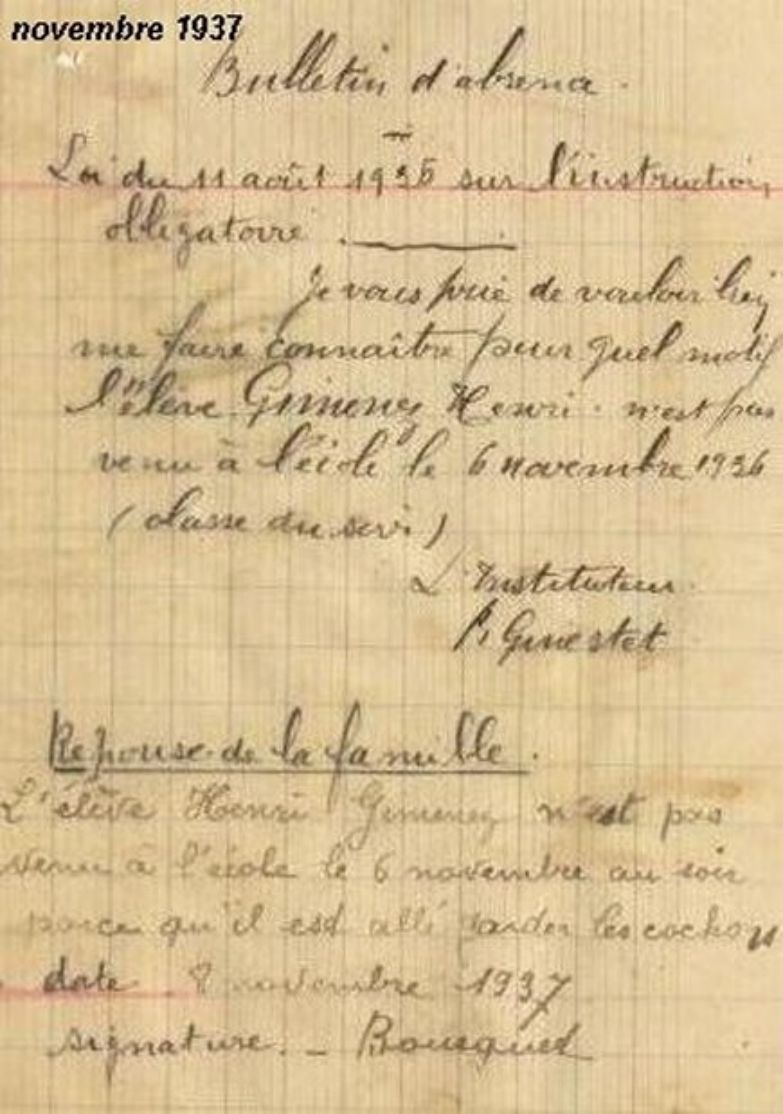 novembre 1937
Bulletin d'absence.
Loi du 11 août 1936 sur l'instruction
obligatoire.
Je vous prie de vouloir bien
me faire connaître pour quel motif
l'élève Gimenez Henri. n'est pas
venu à l'école le 6 novembre 1936
(classe du soir)
L'Instituteur.
Ginestet
Réponse de la famille.
L'élève Henri Gimenez n'est pas
venu à l'école le 6 novembre au soir
parce qu'il est allé garder les cochons
date 8 novembre 1937
signature. - Bousquet